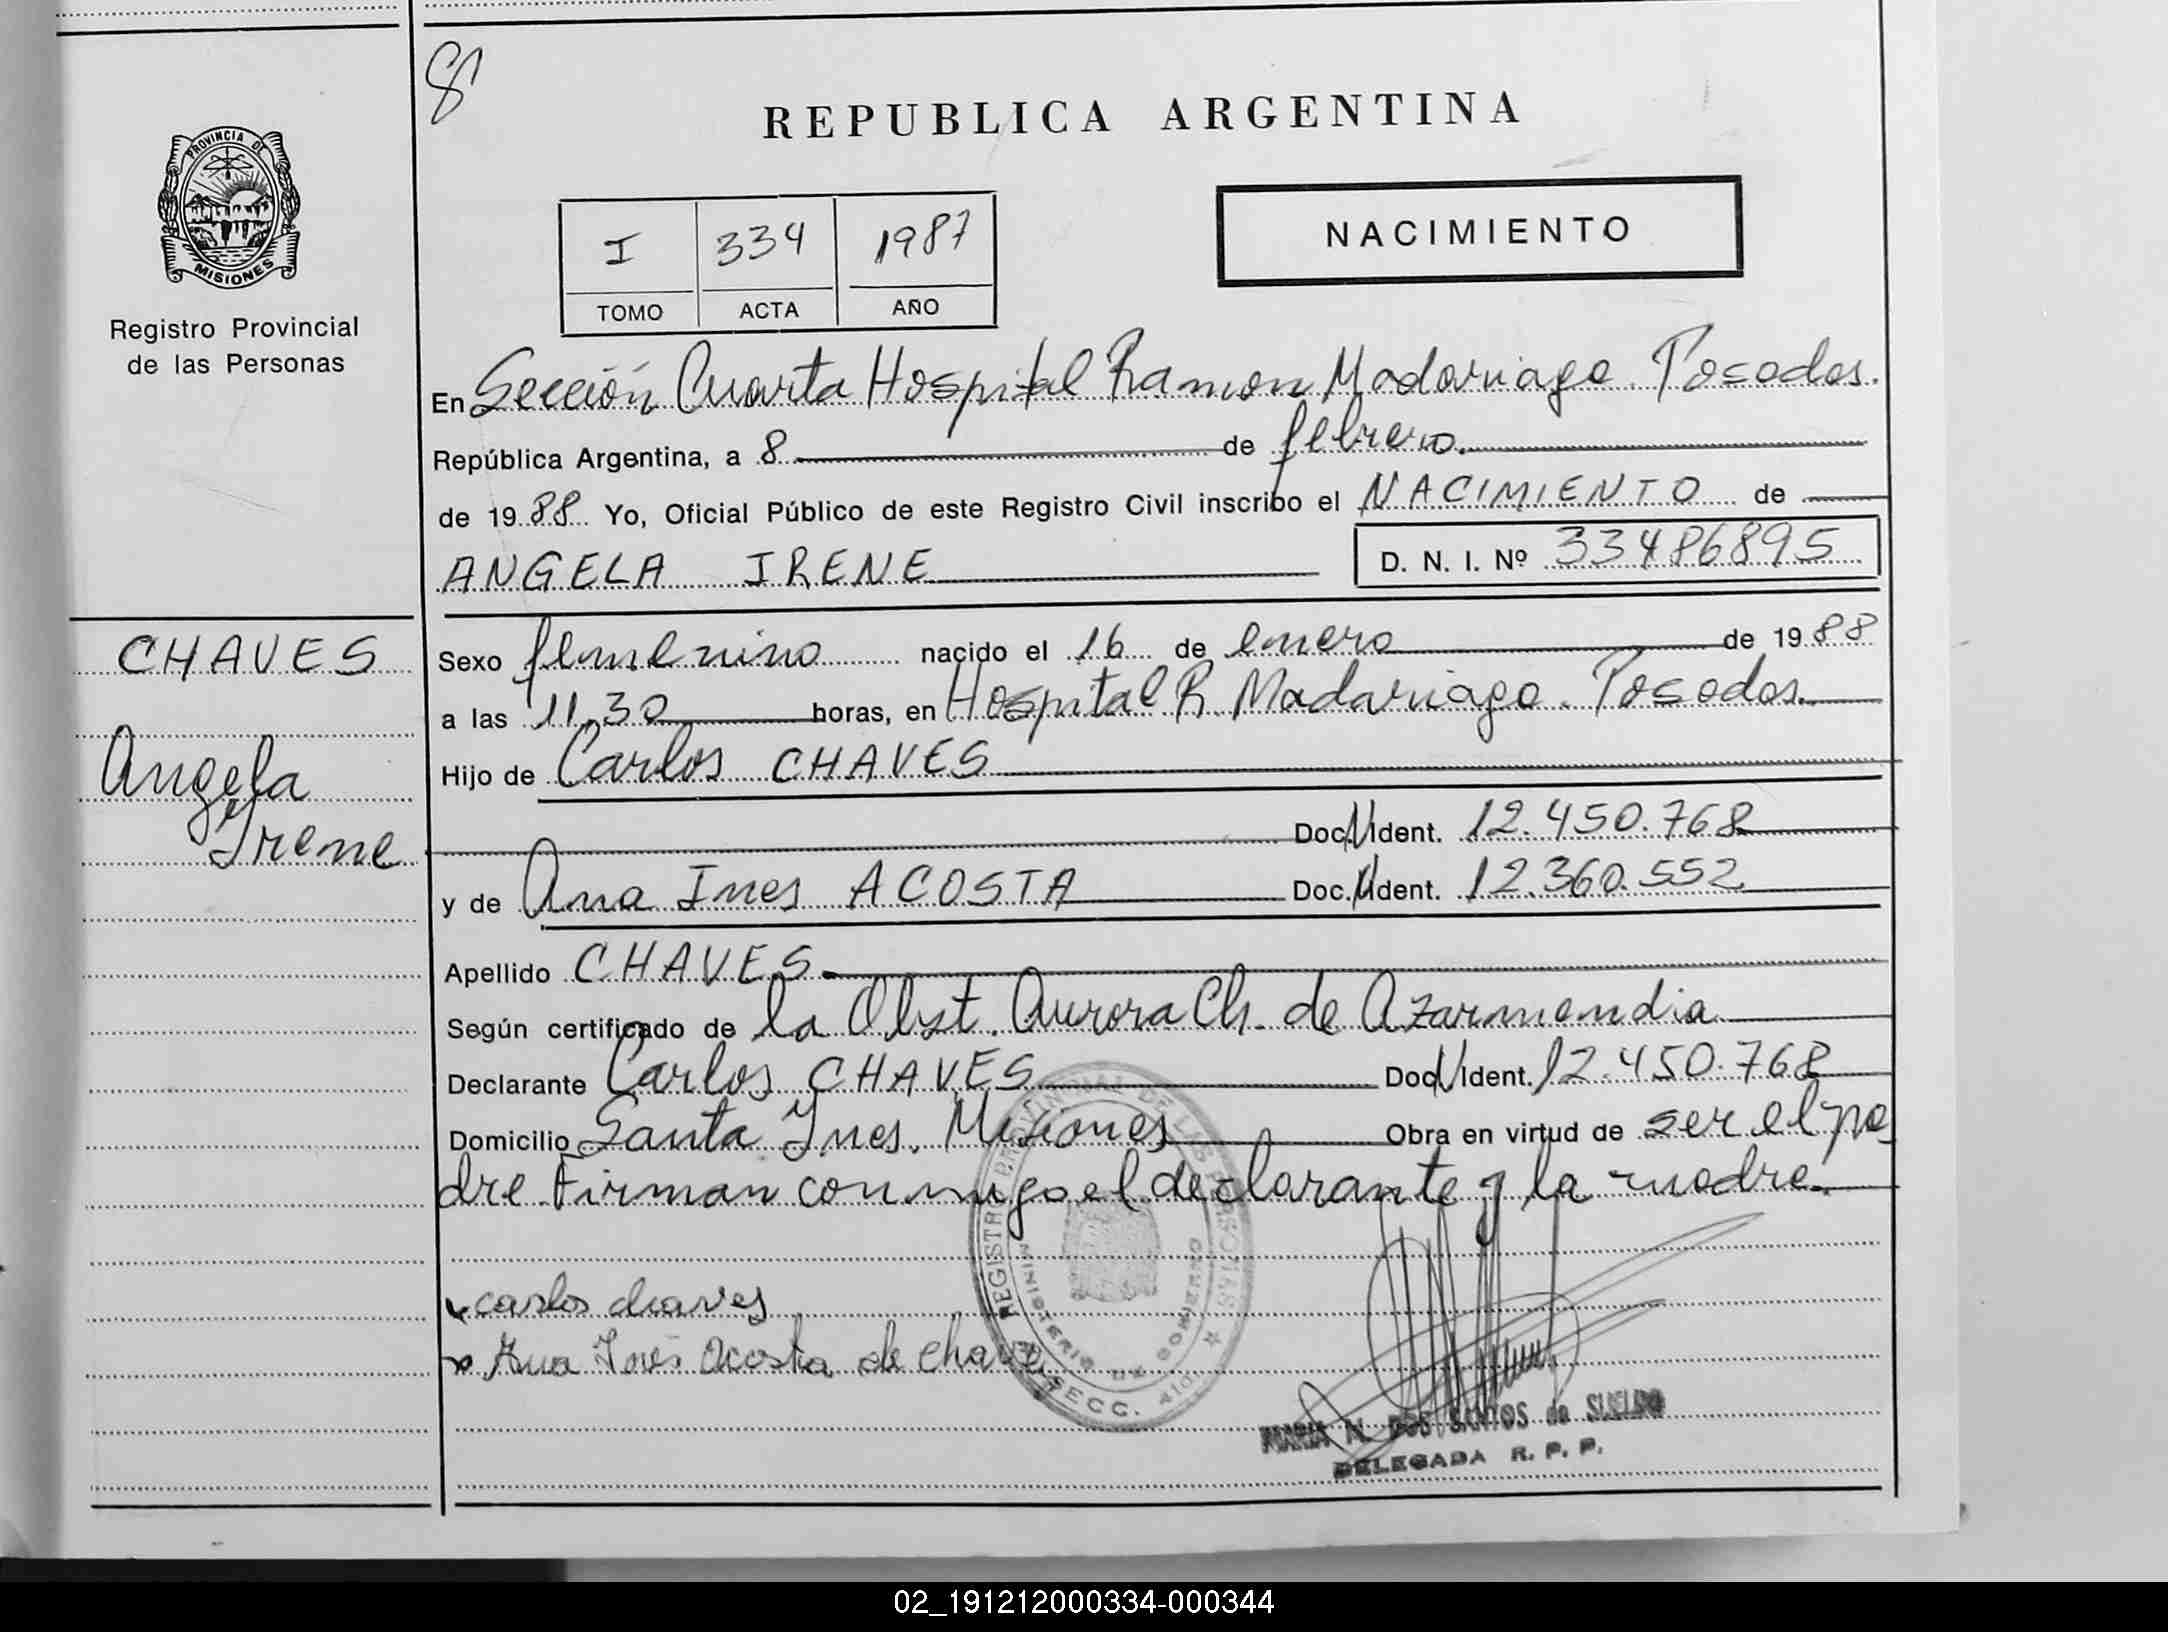 8
REPUBLICA ARGENTINA
PROVINCIA DE
MISIONES
Registro Provincial
de las Personas
I 334 1987
TOMO ACTA AÑO
NACIMIENTO
En Sección Cuarta Hospital Ramon Madariaga. Posadas.
República Argentina, a 8 de febrero.
de 1988 Yo, Oficial Público de este Registro Civil inscribo el NACIMIENTO de
ANGELA IRENE D. N. I. Nº 33486895
CHAVES
Angela
Irene
Sexo femenino nacido el 16 de enero de 1988
a las 11,30 horas, en Hospital R. Madariaga. Posadas.
Hijo de Carlos CHAVES
Doc. N. Ident. 12.450.768
y de Ana Ines ACOSTA Doc. N. Ident. 12.360.552
Apellido CHAVES
Según certificado de la Obst. Aurora Ch. de Azarmendia
Declarante Carlos CHAVES Doc. N. Ident. 12.450.768
Domicilio Santa Ynes. Misiones Obra en virtud de ser el pa
dre. Firman conmigo el declarante y la madre.
carlos chaves
Ana Ines Acosta de Chave
REGISTRO PROVINCIAL DE LAS PERSONAS
MINISTERIO DE GOBIERNO
SECC. 4ta.
MARIA N. DOS SANTOS de SUELDO
DELEGADA R. P. P.
02_191212000334-000344